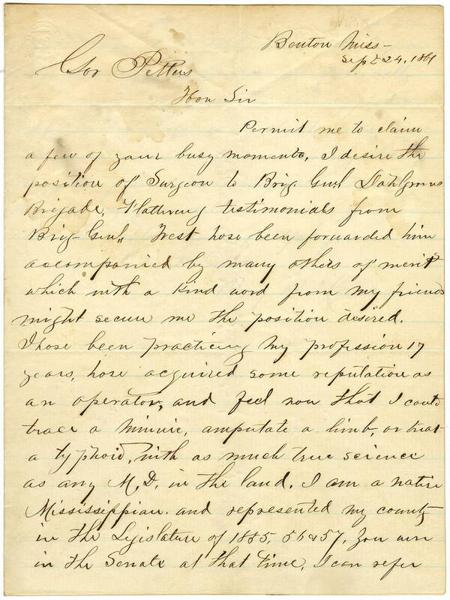 Benton Miss-
Sept 24, 1861
Gov Pettus
Hon Sir
Permit me to claim
a few of your busy moments. I desire the
position of Surgeon to Brig Genl Dahlgrens
Brigade, Flattering testimonials from
Brig-Genl, West have been forwarded him
accompanied by many others of merit
which with a kind word from my friends
might secure me the position desired.
I have been practicing my profession 17
years, have acquired some reputation as
an operator, and feel now that I could
trace a minnie, amputate a limb, or treat
a typhoid, with as much true science
as any M.D. in the land. I am a native
Mississippian and represented my county
in the Legislature of 1855, 56 & 57, You were
in the Senate at that time, I can refer